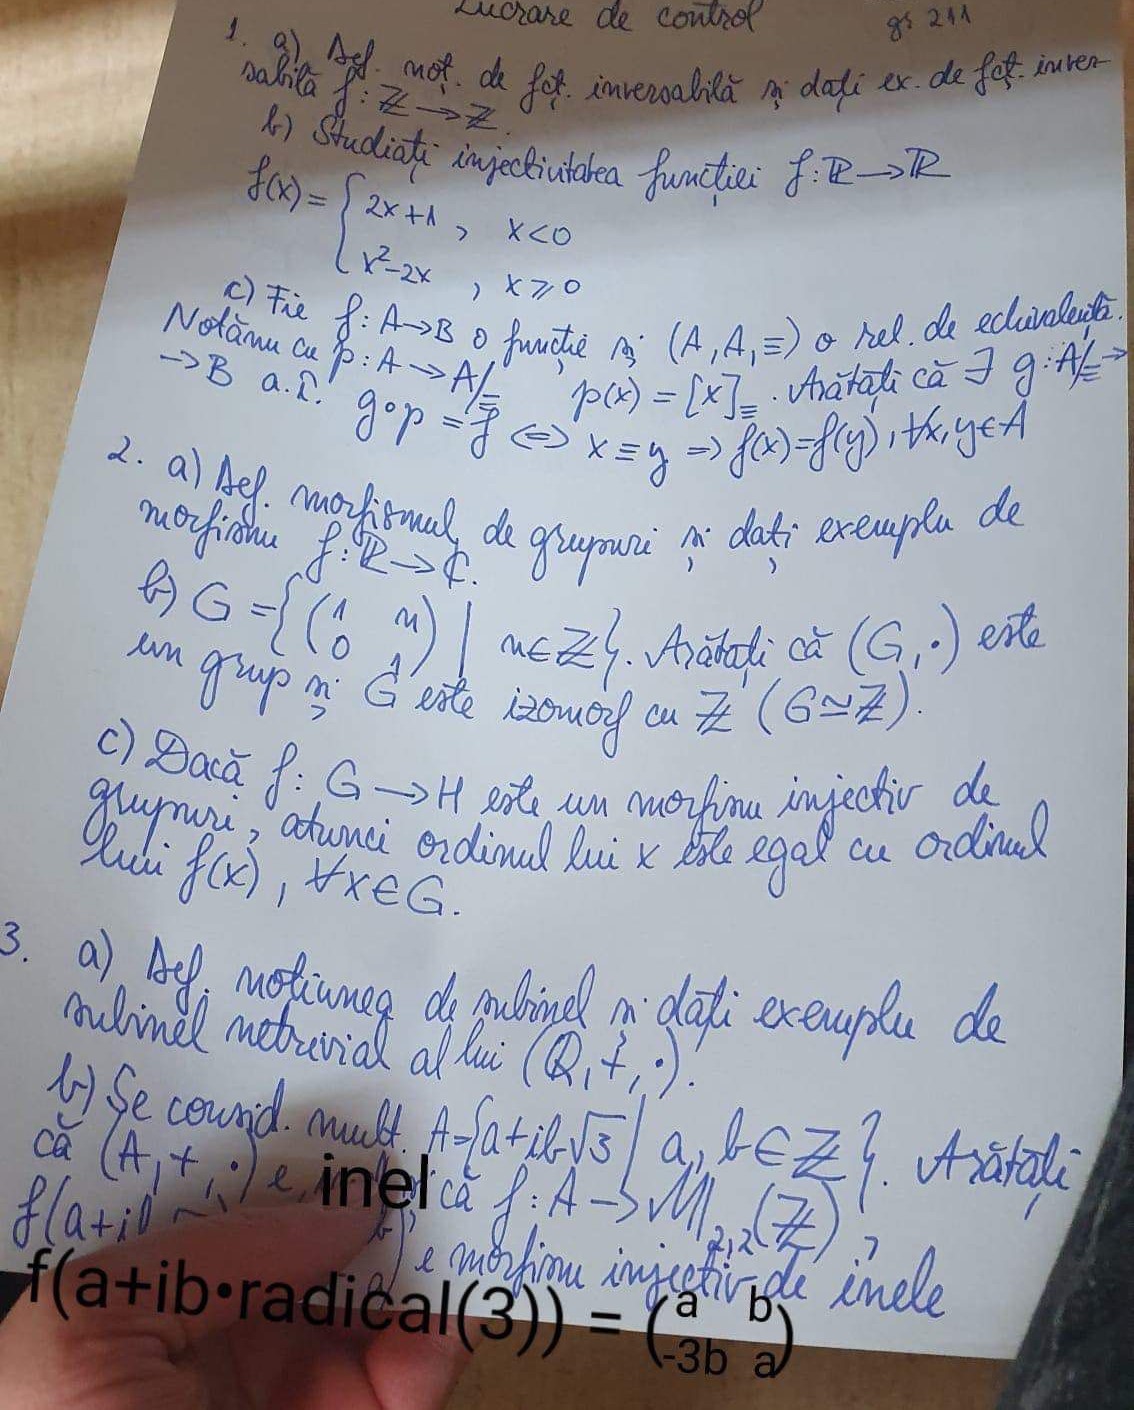 Lucrare de control
gr 211
1. a) Def. noț. de fcț. inversabilă și dați ex. de fcț. inver-
sabilă f: ℤ → ℤ.
b) Studiați injectivitatea funcției f: ℝ → ℝ
f(x) = { 2x+1 , x<0
x²-2x , x ⩾ 0
c) Fie f: A→B o funcție și (A, A, ≡) o rel. de echivalență.
Notăm cu p: A → A/≡ p(x) = [x]≡. Arătați că ∃ g: A/≡ →
→B a.î. g∘p = f ⇔ x ≡ y ⇒ f(x)=f(y), ∀x,y∈A
2. a) Def. morfismul de grupuri și dați exemplu de
morfism f: ℝ → ℂ.
b) G = { (1 n
0 1) | n∈ℤ }. Arătați că (G, ·) este
un grup și G este izomorf cu ℤ (G≃ℤ).
c) Dacă f: G → H este un morfism injectiv de
grupuri, atunci ordinul lui x este egal cu ordinul
lui f(x), ∀x∈G.
3. a) Def. noțiunea de subinel și dați exemplu de
subinel netrivial al lui (Q, +, ·).
b) Se consid. mult. A={a+ib√3 | a, b∈ℤ}. Arătați
că (A, +, ·) e inel că f: A → M₂,₂(ℤ),
f(a+i e morfism injectiv de inele
f(a+ib•radical(3)) = (a b
-3b a)